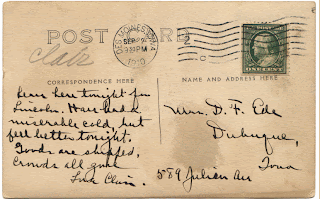 POST CARD
DES MOINES, IOWA
SEP
9 30 PM
1910
ONE CENT
CORRESPONDENCE HERE
NAME AND ADDRESS HERE
here tonight for
Lincoln. Have had a
miserable cold, but
feel better tonight.
Goods are shipped,
Crowds all gone
Mrs. D. F. Ede
Dubuque,
Iowa
589 Julian Av